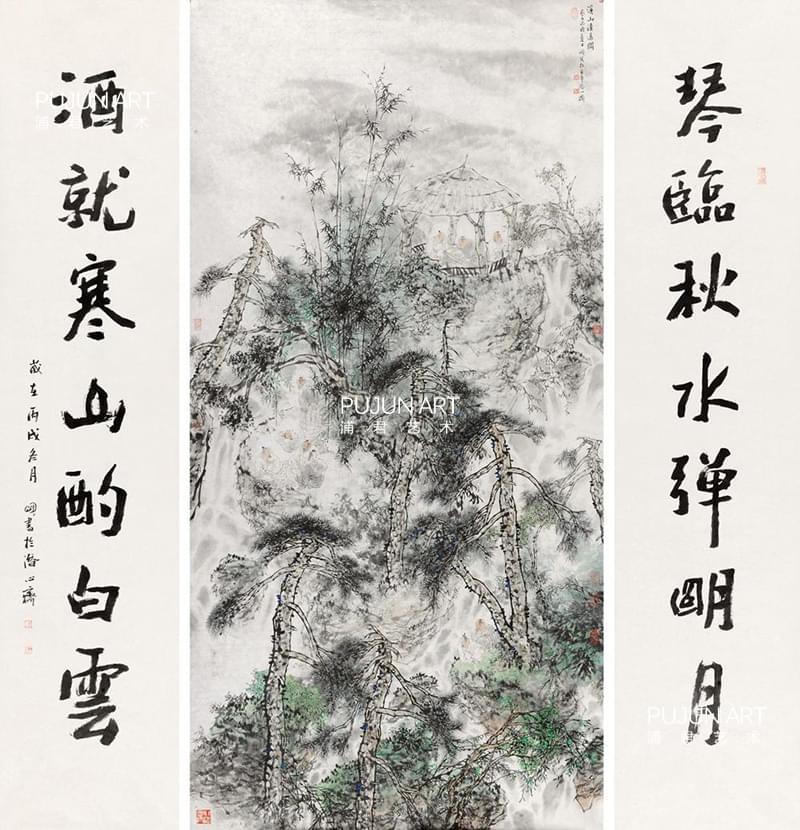 琴臨秋水弹明月
酒就寒山酌白雲
歲在丙戌冬月
書於潛心齋
PUJUN ART
浦君艺术
PUJUN ART
浦君艺术
PUJUN ART
浦君艺术